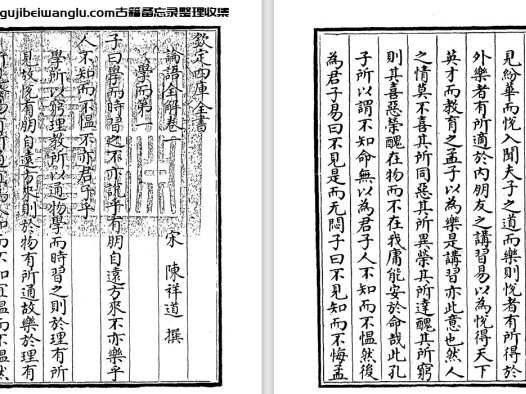 www.gujibeiwanglu.com古籍备忘录整理收集
欽定四庫全書
論語全解卷一
宋 陳祥道 撰
學而第一
子曰學而時習之不亦説乎有朋自遠方來不亦樂乎
人不知而不慍不亦君子乎
學所以窮理教所以通物學而時習之則於理有所
見故悅有朋自遠方來則於物有所通故樂於理有
見紛華而悅入聞夫子之道而樂則悅者有所得於
外樂者有所適於內朋友之講習易以為悅得天下
英才而教育之孟子以為樂是講習亦此意也然人
之情莫不喜其所同惡其所異榮其所達醜其所窮
則其喜惡榮醜在物而不在我庸能安於命哉此孔
子所以謂不知命無以為君子人不知而不慍然後
為君子易曰不見是而无悶子曰不見知而不悔孟